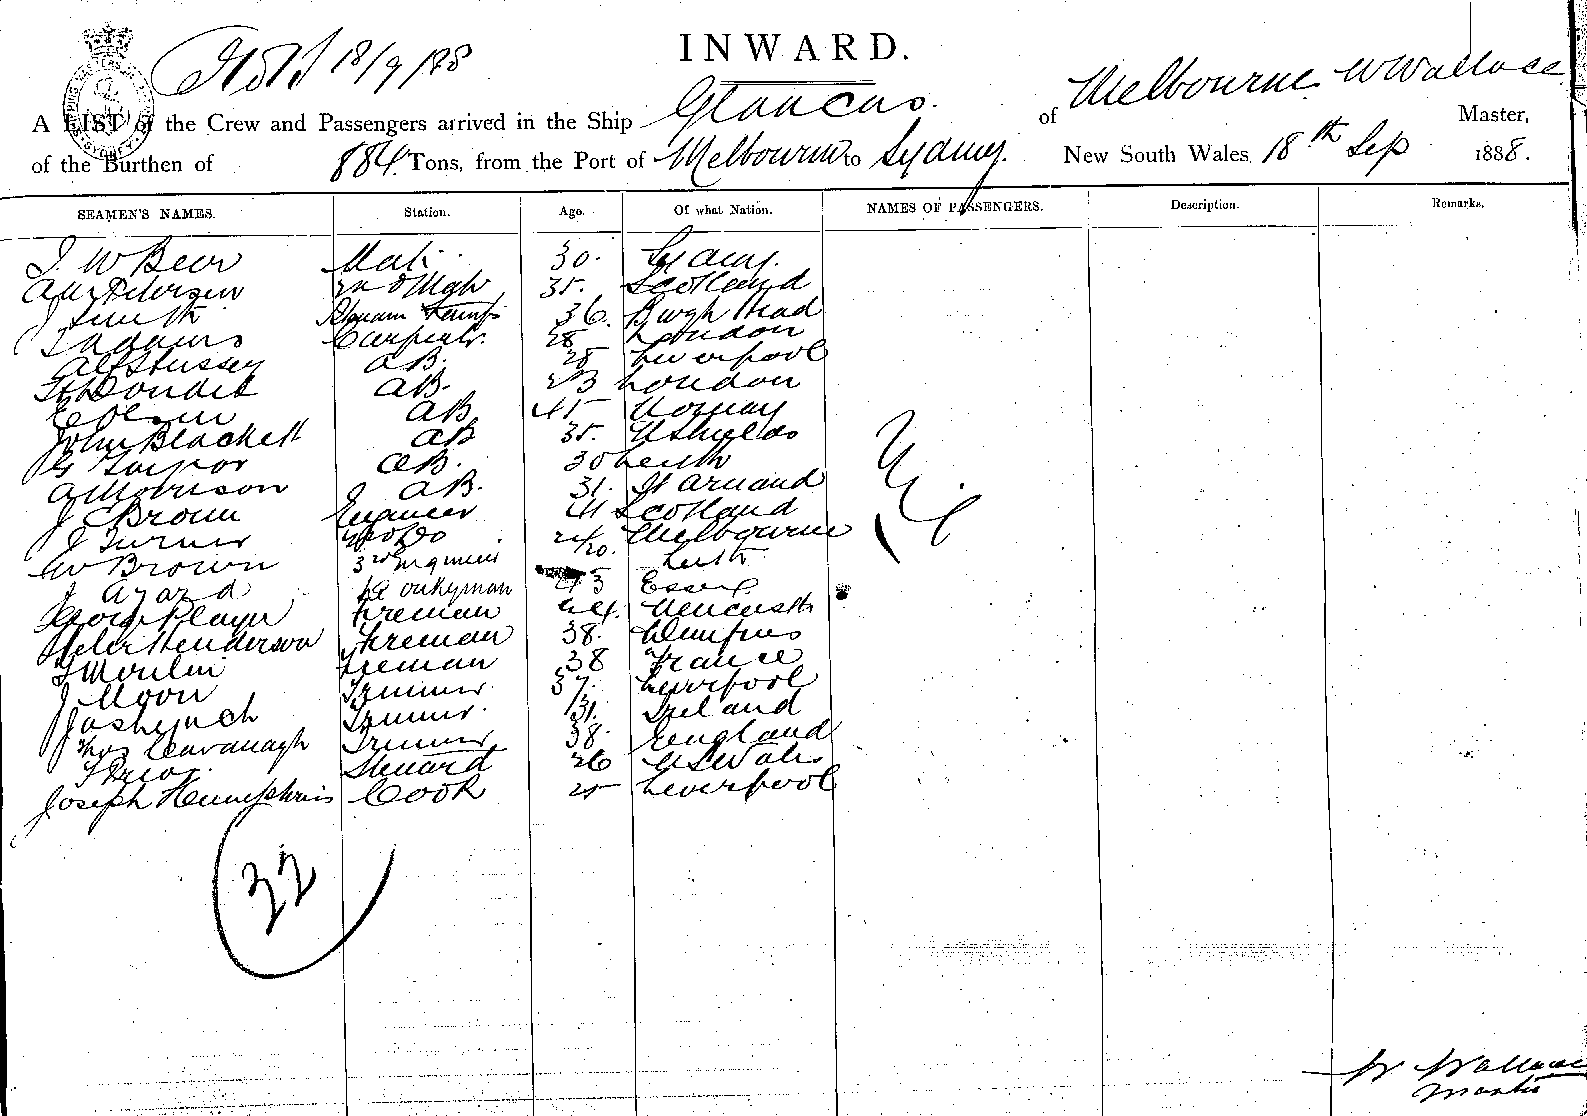 18/9/88
INWARD.
A LIST of the Crew and Passengers arrived in the Ship Glaucus. of Melbourne W Wallace Master,
of the Burthen of 884 Tons, from the Port of Melbourne to Sydney. New South Wales 18th Sep 1888.
SEAMEN'S NAMES. Station. Age. Of what Nation. NAMES OF PASSENGERS. Description. Remarks.
J. W Beer Mate 30. Sydney.
Petersen 2nd Mate 35. Scotland
J Smith Lamps 36. Burgh Head
Adams Carpenter. 28 London
Alf Hussey AB. 28 Liverpool
AB. 23 London
E Olsen AB 45 Norway
John Blackett AB 35. N Shields
G Taylor AB. 30 Leith
A Morrison AB. 31. St Arnaud
J C Brown Engineer 41 Scotland
J Turner 2nd Do Melbourne
W Brown 3rd Engineer 20. Leith
J Ayard Donkeyman 45 Essex
George Player Fireman 44. Newcastle
Peter Henderson Fireman 38. Dumfries
Moulin Fireman 38 France
J Moon Trimmer 37. Liverpool
Jas Lynch Trimmer. 31. Ireland
Thos Cavanagh Trimmer 38. England
Steward 26 N S Wales
Joseph Humphris Cook 25 Liverpool
Nil
22
W Wallace
Master